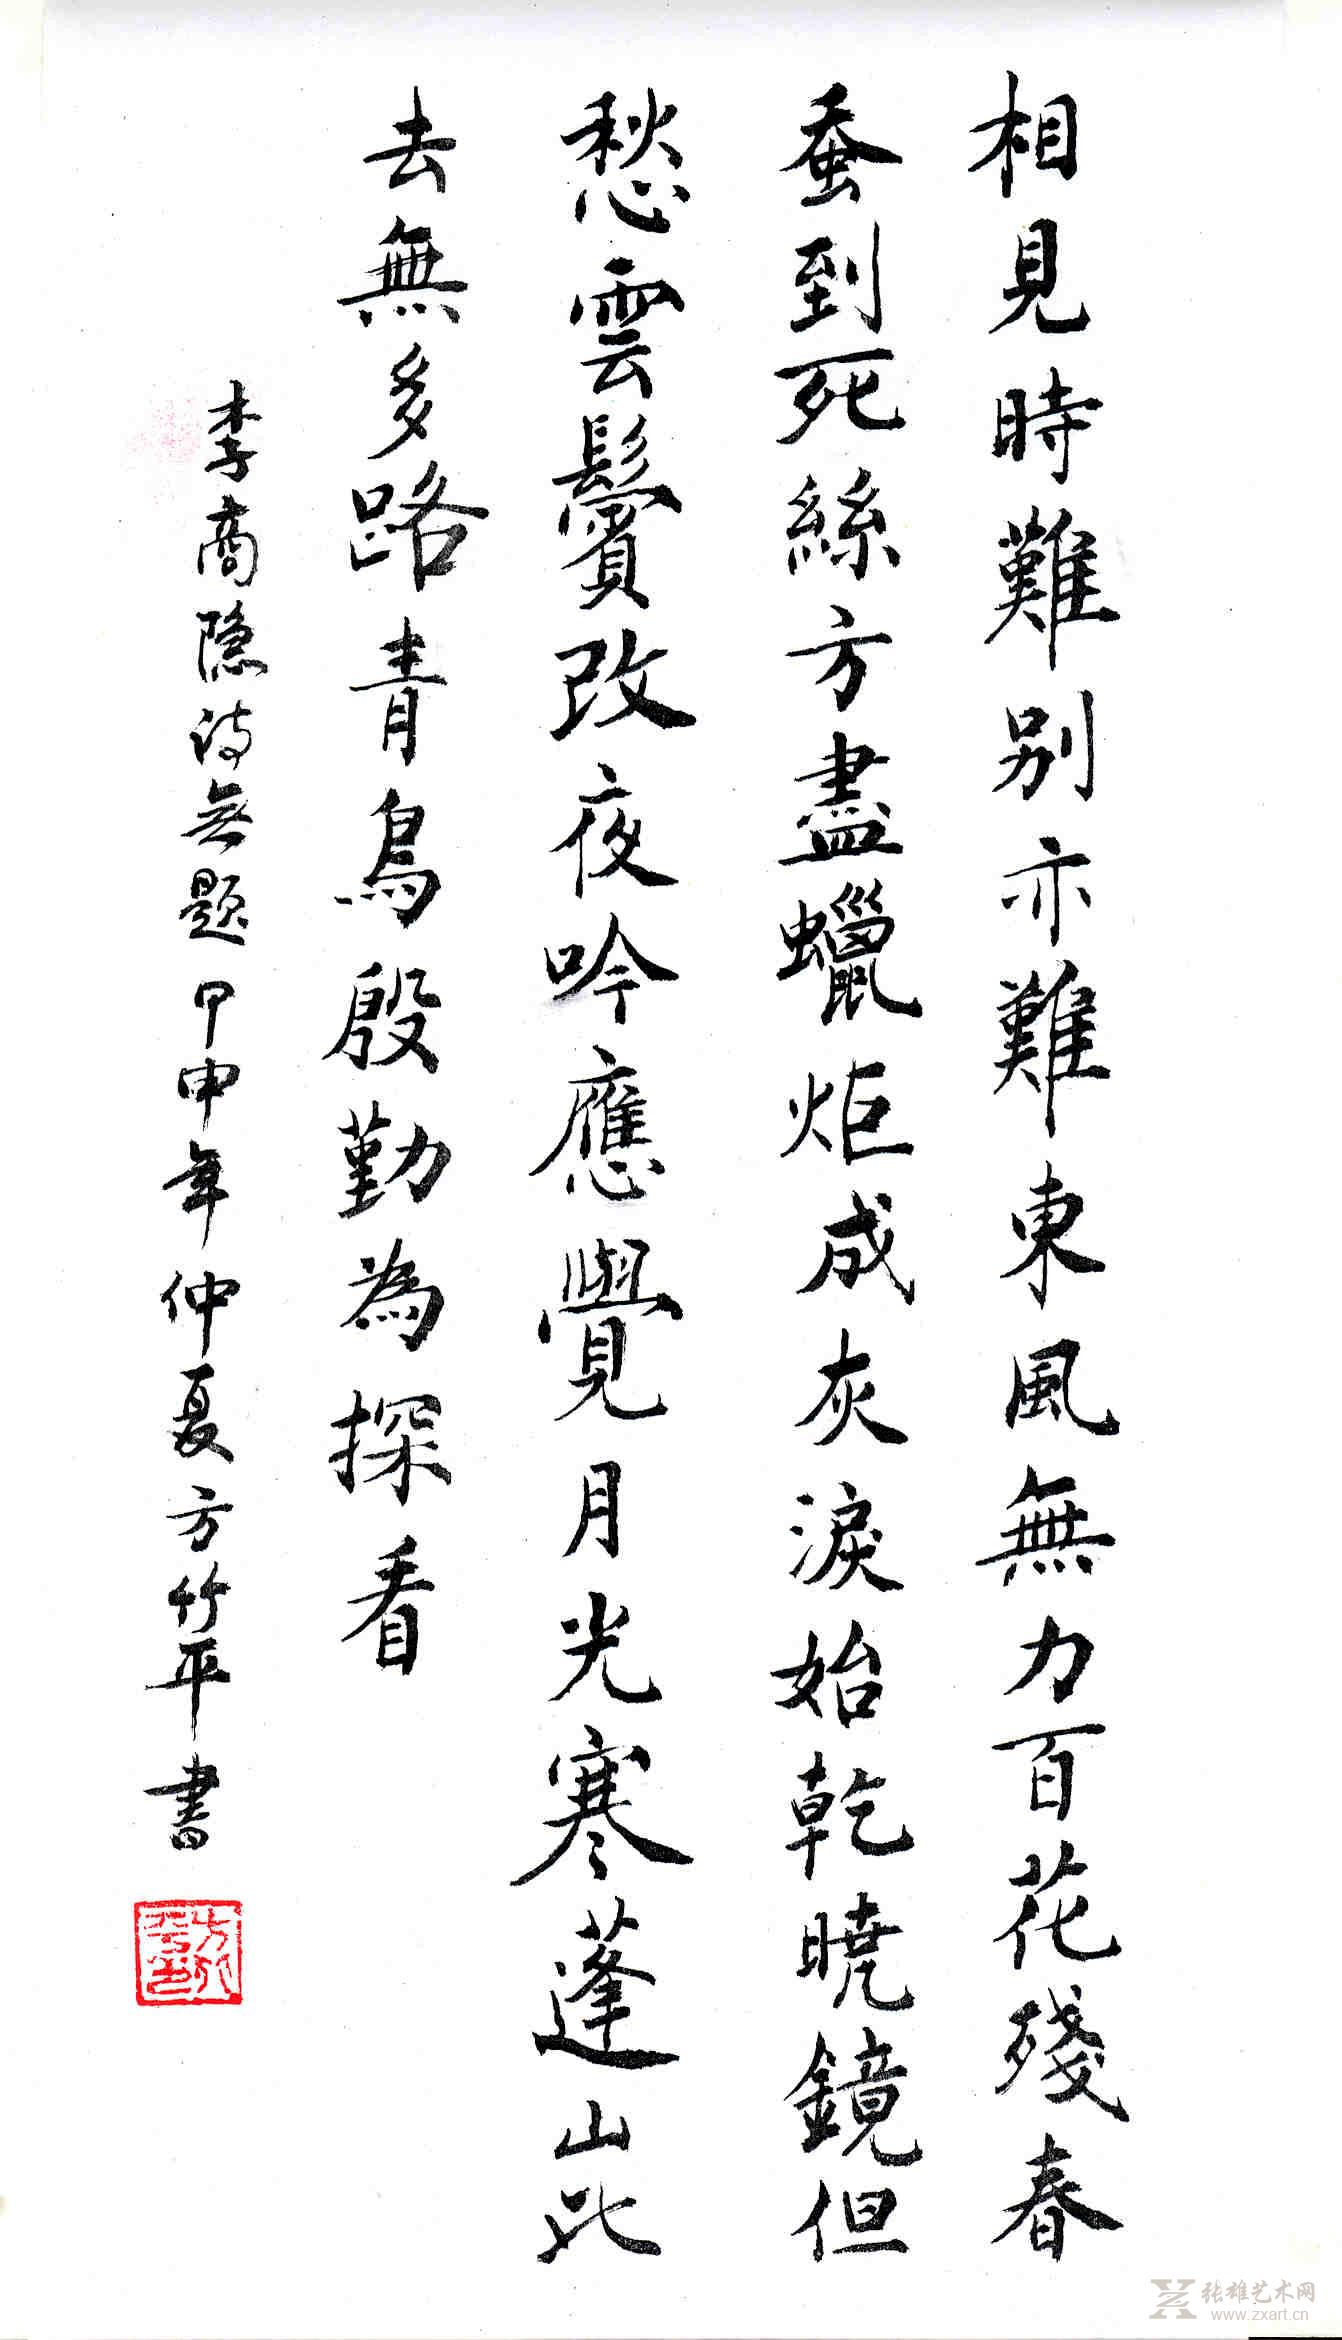 相見時難别亦難東風無力百花殘春
蚕到死絲方盡蠟炬成灰淚始乾曉鏡但
愁雲鬢改夜吟應覺月光寒蓬山此
去無多路青鳥殷勤為探看
李商隐诗無题甲申年仲夏方竹平書
张雄艺术网
www.zxart.cn